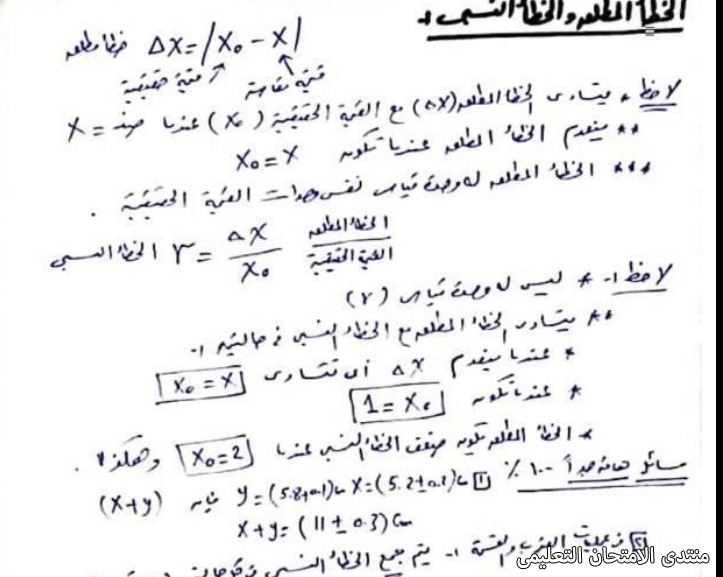 الخطأ المطلق والخطأ النسبي :-
خطأ مطلق ΔX = |X₀ - X|
قيمة حقيقية قيمة مقاسة
لاحظ * يتساوى الخطأ المطلق (ΔX) مع القيمة الحقيقية (X₀) عندما صفر = X
** ينعدم الخطأ المطلق عندما تكون X₀ = X
*** الخطأ المطلق له وحدة قياس نفس وحدات القيمة الحقيقية .
الخطأ النسبي r = ΔX / X₀ الخطأ المطلق / القيمة الحقيقية
لاحظ :- * ليس له وحدة قياس (r)
** يتساوى الخطأ المطلق مع الخطأ النسبي في حالتين :-
* عندما ينعدم ΔX أى تتساوى X₀ = X
* عندما تكون 1 = X₀
* الخطأ المطلق يكون ضعف الخطأ النسبي عندما X₀ = 2 وهكذا .
مسائل هامة جداً ١٠٠ % ① X = (5.2 ± 0.2) Cm y = (5.8 ± 0.1) Cm فإن (X + y)
X + y = (11 ± 0.3) Cm
② في عمليات الضرب والقسمة :- يتم جمع الخطأ النسبي
منتدى الامتحان التعليمى